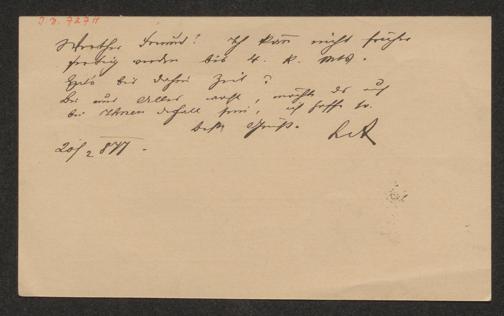 I. N. 727 11
Werther Freund! Ich kann nicht früher
fertig werden bis 4. k. Mts.
Geht's bis dahin Zeit?
Bei uns Alles wohl, möchte es auch
bei Ihnen der Fall sein, ich hoffe es.
Beste Grüße.
20/2 877.